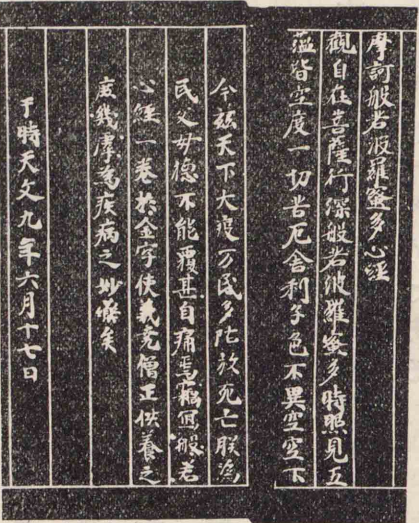 摩訶般若波羅蜜多心経
觀自在菩薩行深般若波羅蜜多時照見五
蘊皆空度一切苦厄舎利子色不異空空不
今茲天下大疫万民多阽於死亡朕為
民父母徳不能覆甚自痛焉竊写般若
心経一巻於金字使義尭僧正供養之
庶幾虖為疾病之妙薬矣
于時天文九年六月十七日